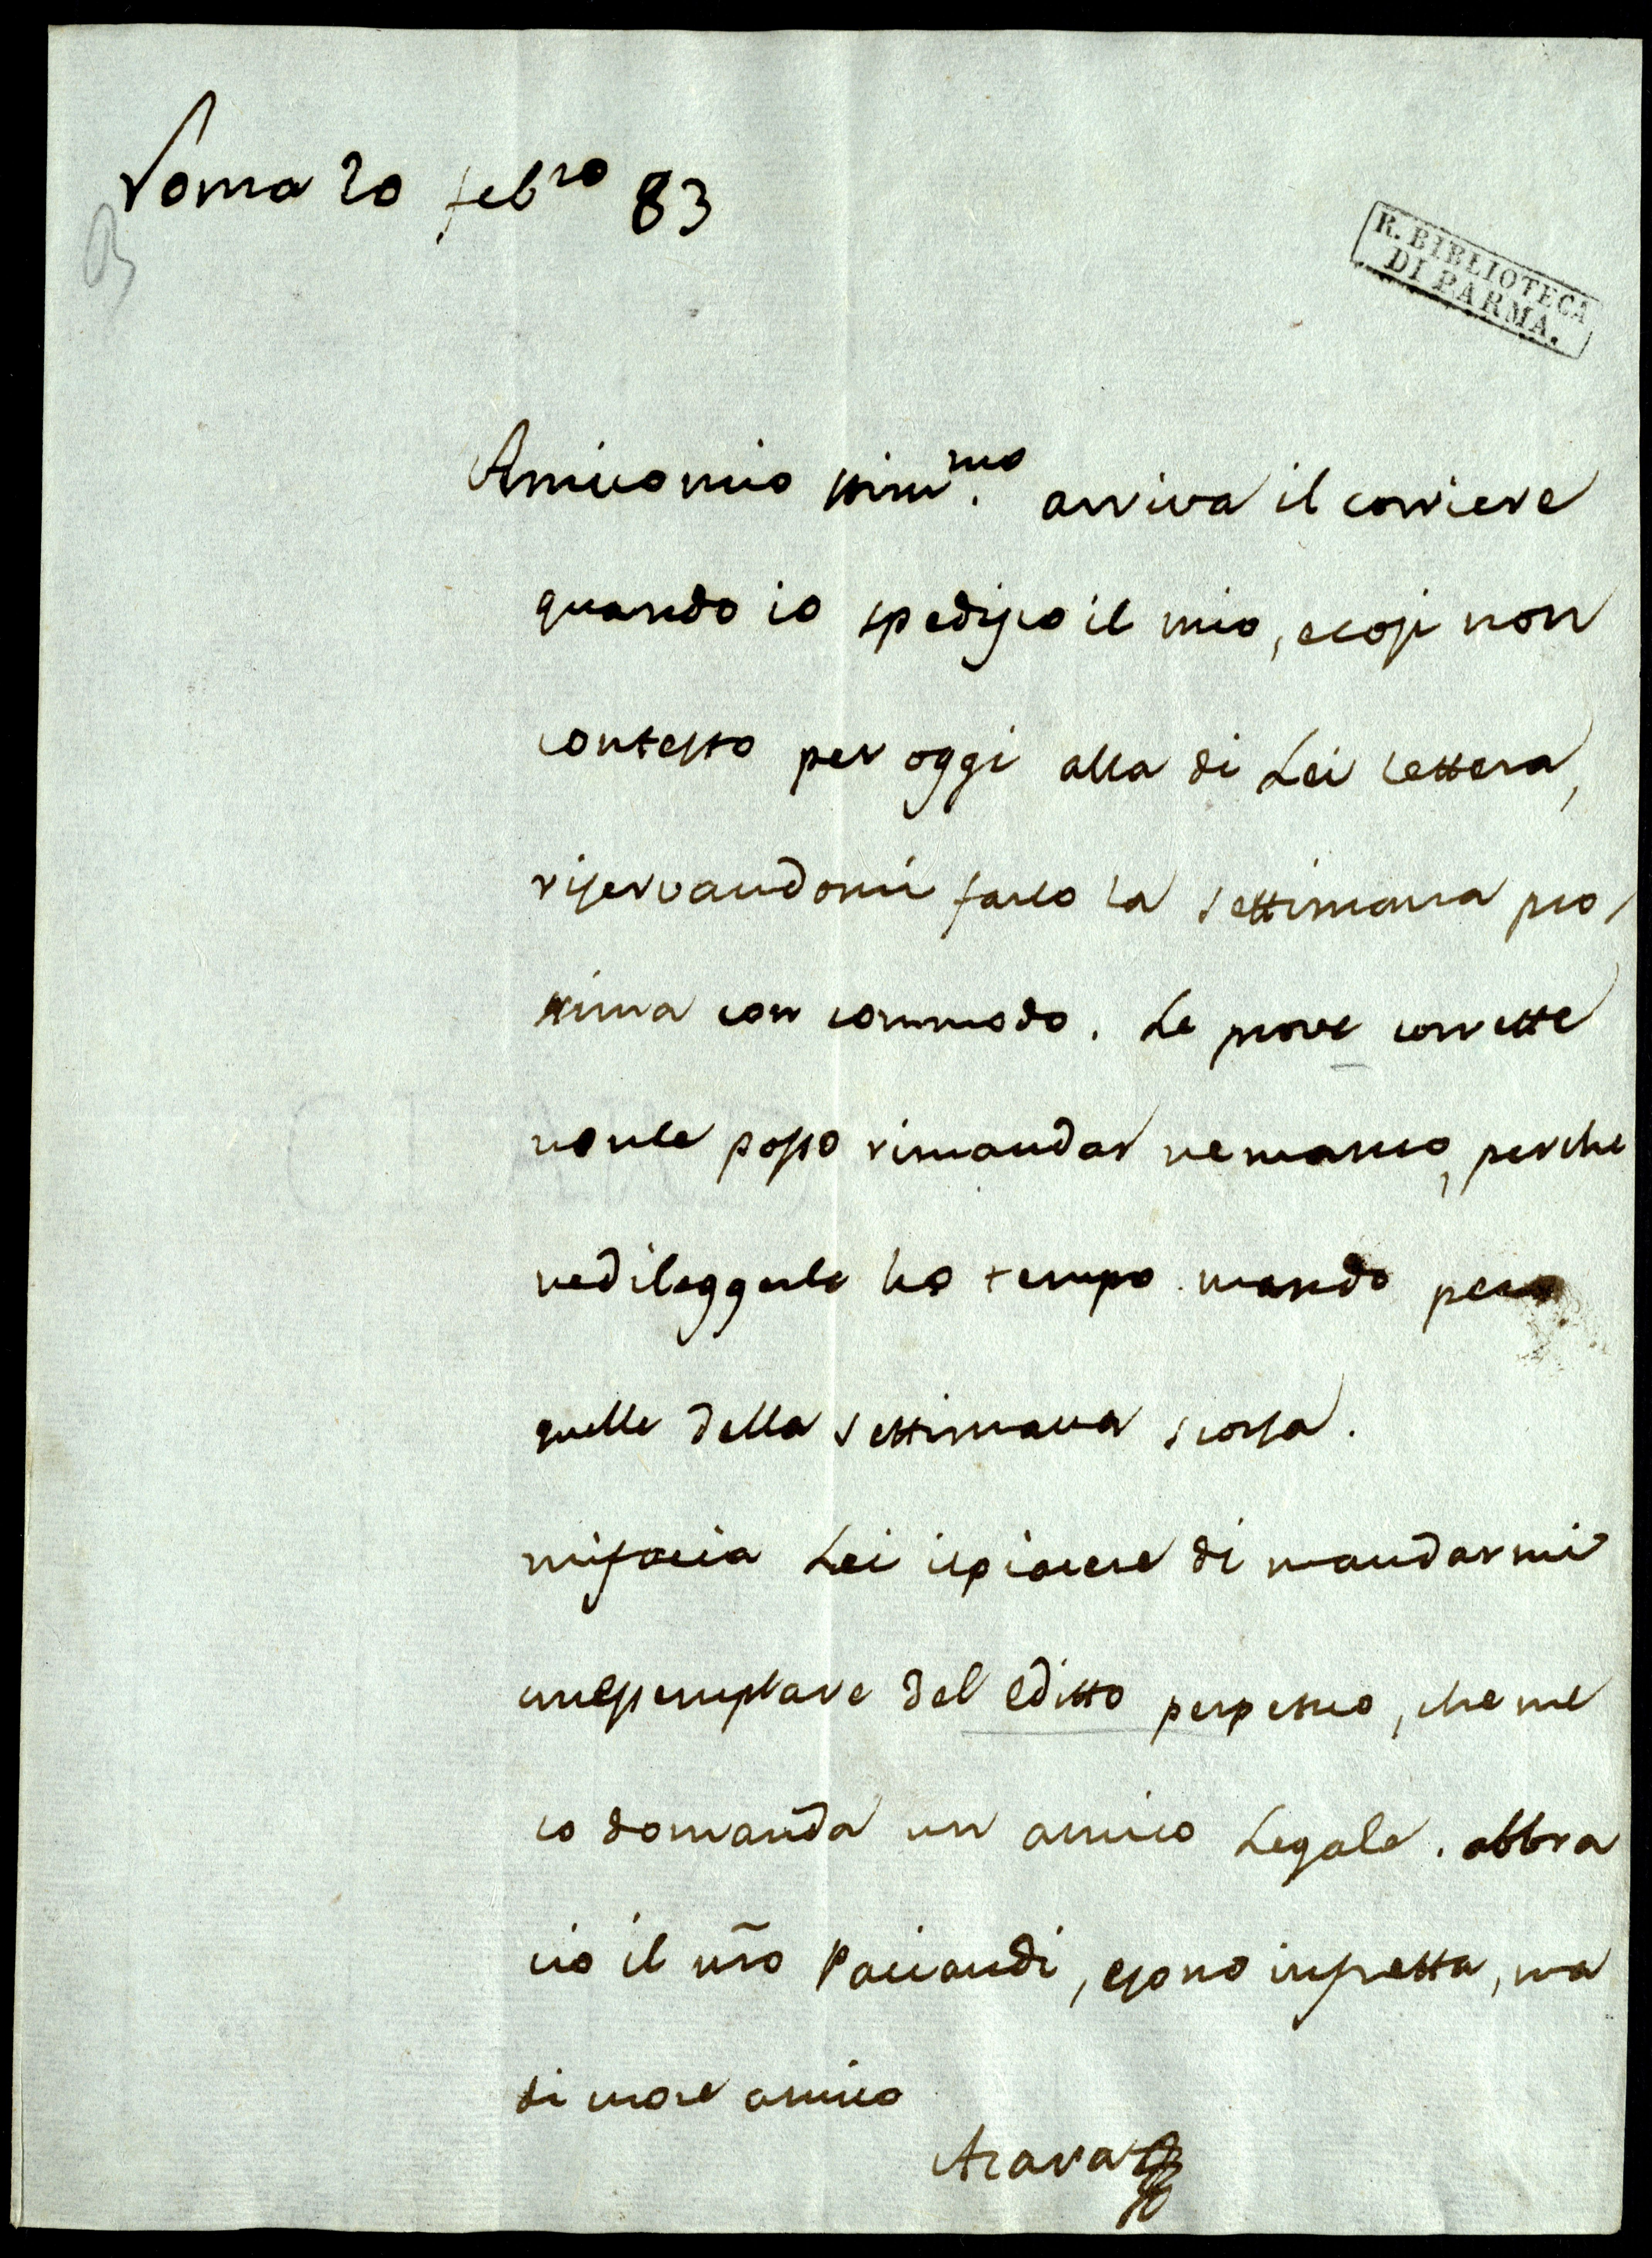 Roma 20 feb.ro 83
R. BIBLIOTECA
DI PARMA.
Amico mio arriva il corriere
quando io spedisco il mio, e cosi non
contesto per oggi alla di Lei lettera,
riservandomi farlo la settimana pro/
xima con commodo. Le prove corrette
non le posso rimandar ne manco, perche
ne di leggerle ho tempo. mando pero
quelle della settimana scorsa.
mi faccia Lei il piacere di mandarmi
un esemplare del Editto perpetuo, che me
lo domanda un amico Legale. abbra
cio il nr̃o Paciaudi, e sono in fretta, ma
di core amico
Azara